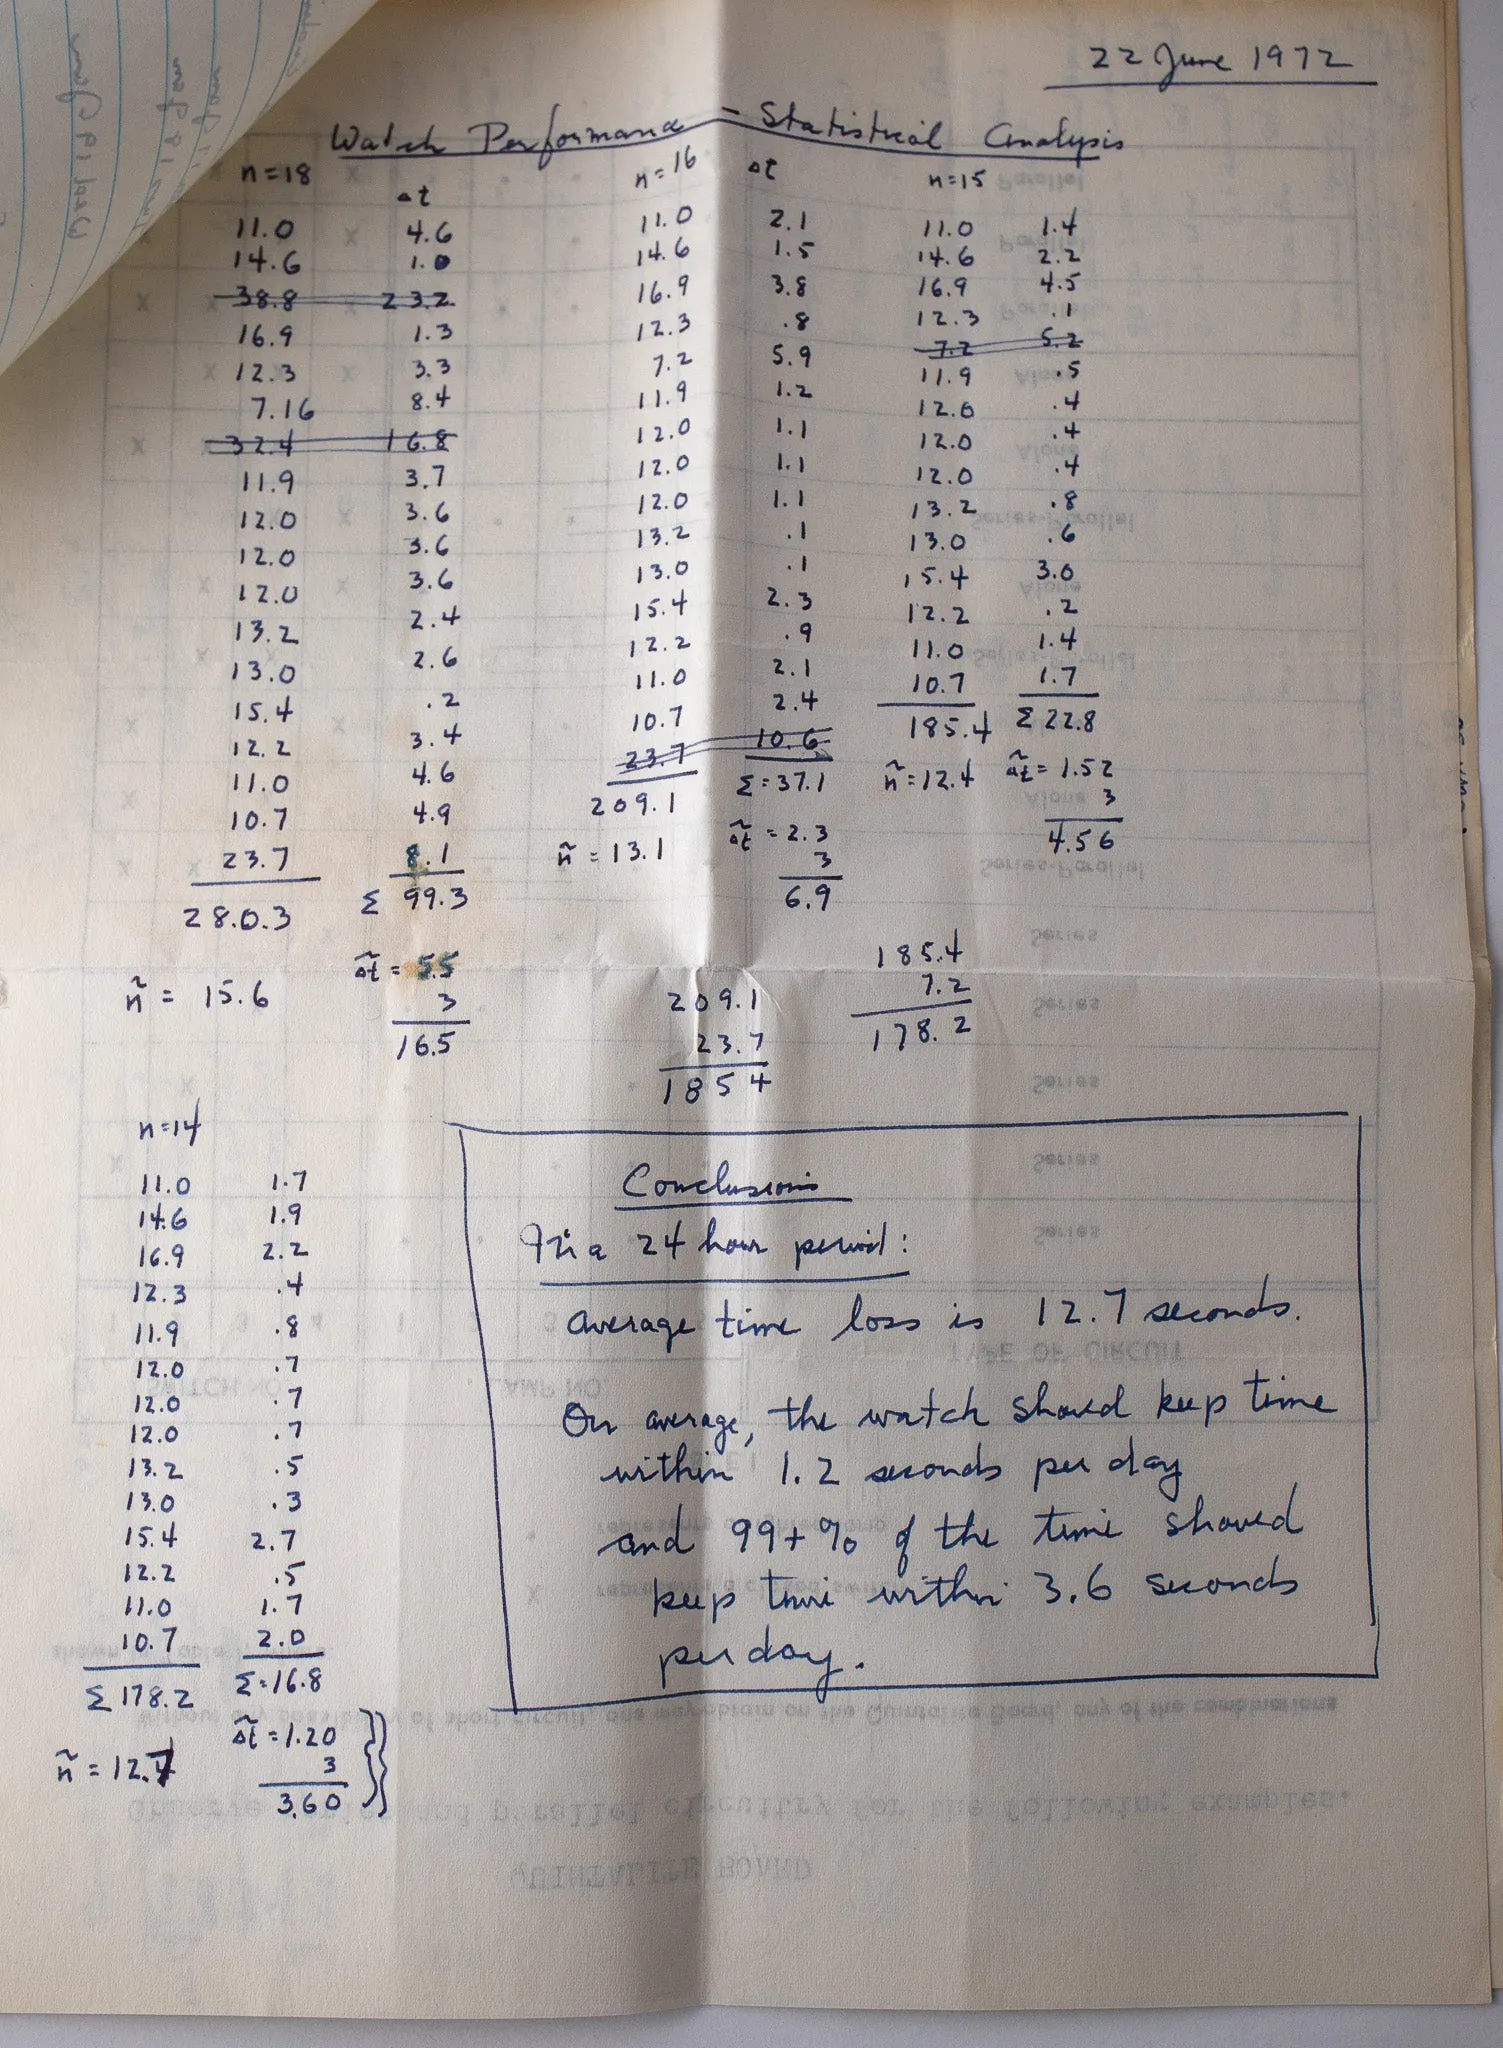 22 June 1972
Watch Performance - Statistical Analysis
n=18
Δt
11.0 4.6
14.6 1.0
38.8 23.2
16.9 1.3
12.3 3.3
7.16 8.4
32.4 16.8
11.9 3.7
12.0 3.6
12.0 3.6
12.0 3.6
13.2 2.4
13.0 2.6
15.4 .2
12.2 3.4
11.0 4.6
10.7 4.9
23.7 8.1
280.3 Σ 99.3
ñ = 15.6 Δt̃ = 5.5
3
16.5
n=16 Δt
11.0 2.1
14.6 1.5
16.9 3.8
12.3 .8
7.2 5.9
11.9 1.2
12.0 1.1
12.0 1.1
12.0 1.1
13.2 .1
13.0 .1
15.4 2.3
12.2 .9
11.0 2.1
10.7 2.4
23.7 10.6
209.1 Σ=37.1
ñ = 13.1 Δt̃ = 2.3
3
6.9
209.1
23.7
1854
n=15
11.0 1.4
14.6 2.2
16.9 4.5
12.3 .1
7.2 5.2
11.9 .5
12.0 .4
12.0 .4
12.0 .4
13.2 .8
13.0 .6
15.4 3.0
12.2 .2
11.0 1.4
10.7 1.7
185.4 Σ 22.8
ñ=12.4 Δt̃= 1.52
3
4.56
185.4
7.2
178.2
n=14
11.0 1.7
14.6 1.9
16.9 2.2
12.3 .4
11.9 .8
12.0 .7
12.0 .7
12.0 .7
13.2 .5
13.0 .3
15.4 2.7
12.2 .5
11.0 1.7
10.7 2.0
Σ 178.2 Σ=16.8
ñ = 12.7 Δt̃ = 1.20
3
3.60
Conclusions
In a 24 hour period:
average time loss is 12.7 seconds.
On average, the watch should keep time
within 1.2 seconds per day
and 99+% of the time should
keep time within 3.6 seconds
per day.
QUINTALITE BOARD
Observe series and parallel circuitry for the following examples.
Without any possibility of short circuit, one may obtain on the Quintalite Board, any of the combinations
TYPE OF CIRCUIT
LAMP NO.
SWITCH NO.
Series
Series
Series
Series
Series
Series-Parallel
Alone
Series-Parallel
Alone
Series-Parallel
Alone
Alone
Parallel
Parallel
Parallel